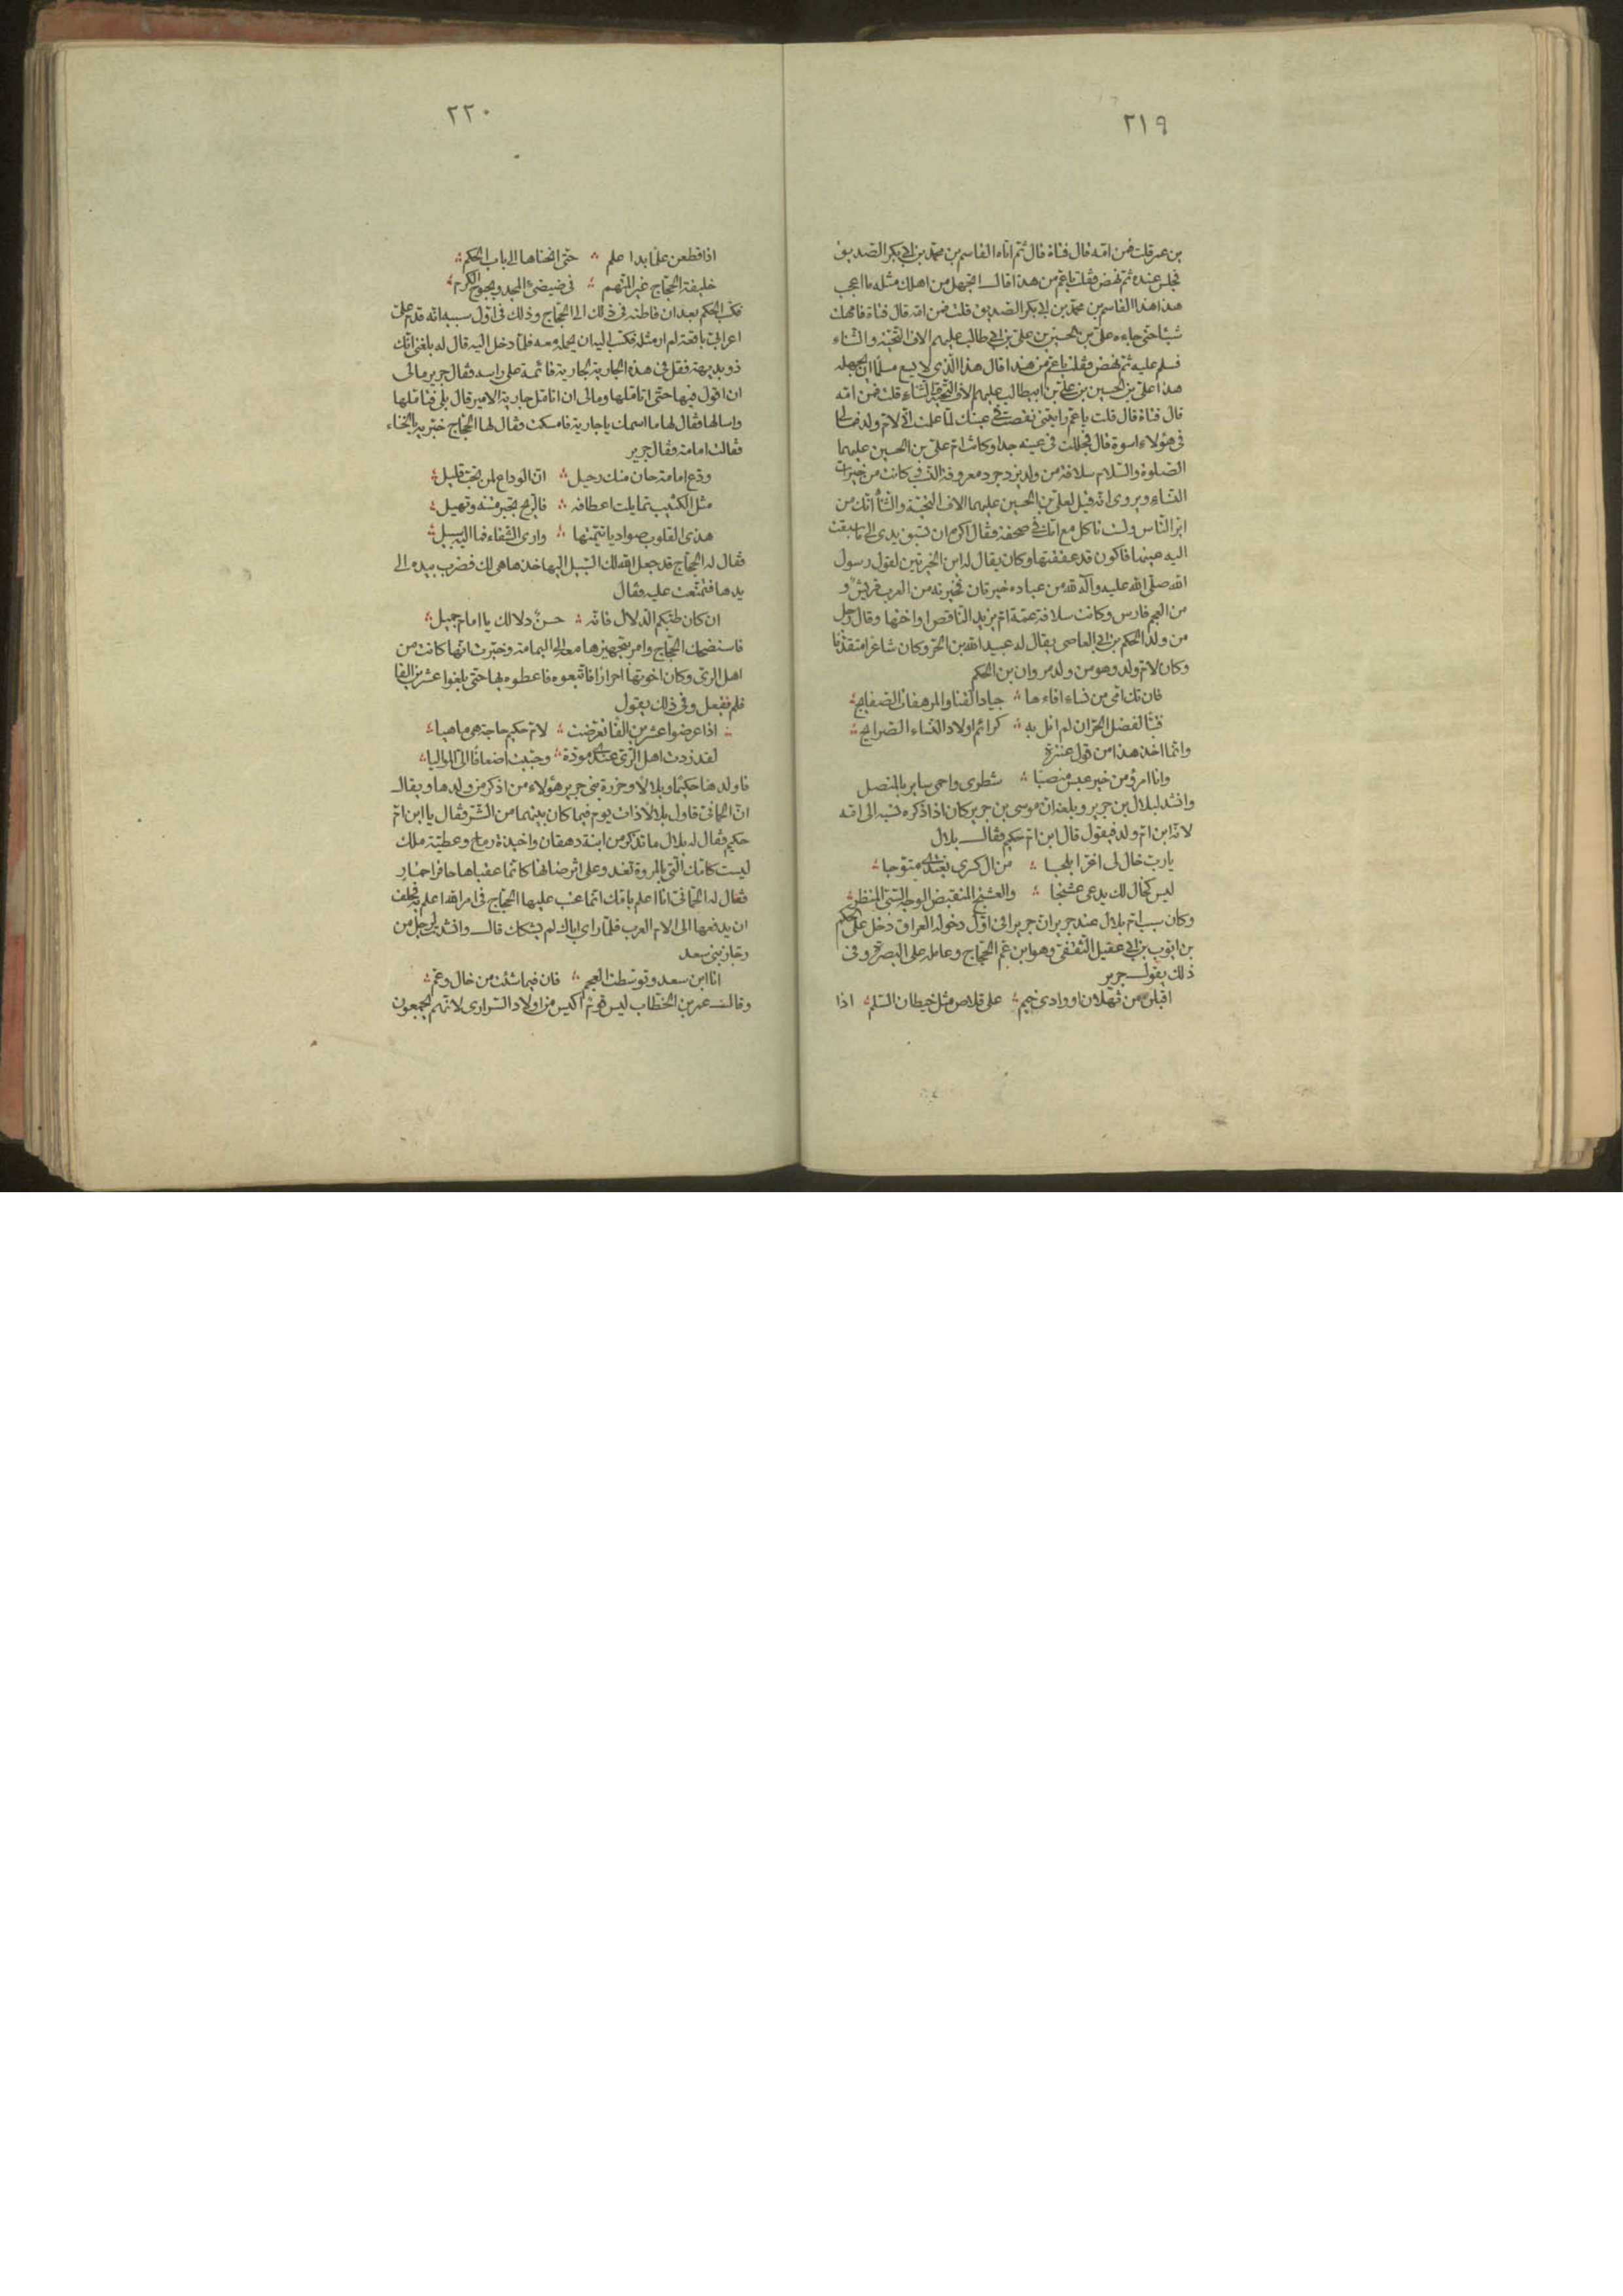 ٢١٩
بن عمر قلت فمن امه قال فتاة قال ثم اتاه القاسم بن محمد بن ابى بكر الصديق
فجلس عنده ثم نهض فقلت يا عم من هذا قال اتجهل من اهلك مثله ما اعجب
هذا هذا القاسم بن محمد بن ابى بكر الصديق قلت فمن امه قال فتاة فامهلت
شيئا حتى جاءه على بن الحسين بن على بن ابى طالب عليهم الاف التحية والثناء
فسلم عليه ثم نهض فقلت يا عم من هذا قال هذا الذى لا يسع مسلما ان يجهله
هذا على بن الحسين بن على بن ابيطالب عليهم الاف التحية والثناء قلت فمن امه
قال فتاة قال قلت يا عم رايتنى نقصت فى عينك لما علمت انى لام ولد فمالى
فى هؤلاء اسوة قال فجللت فى عينه جدا وكانت ام على بن الحسين عليهما
الصلوة والسلام سلافة من ولد يزدجرد معروفة النسب كانت من خيرات
النساء ويروى انه قيل لعلى بن الحسين عليهما الاف التحية والثناء انك من
ابر الناس ولست تاكل مع امك فى صحفة فقال اكره ان تسبق يدى الى ما سبقت
اليه عينها فاكون قد عققتها وكان يقال له ابن الخيرتين لقول رسول
الله صلى الله عليه وآله لله من عباده خيرتان فخيرته من العرب قريش و
من العجم فارس وكانت سلافة عمة ام يزيد الناقص او اختها وقال رجل
من ولد الحكم بن ابى العاصى يقال له عبيد الله بن الحر وكان شاعرا متقدما
وكان لام ولد وهو من ولد مروان بن الحكم
فان تك امى من نساء افاءها ؞ جياد القنا والمرهفات الصفايح ؞
فتبا لفضل الحر ان لم انل به ؞ كرائم اولاد النساء الصرايح ؞
وانما اخذ هذا من قول عنترة
وانا امرؤ من خير عبس منصبا ؞ شطرى واحمى سايرى بالمنصل
وانشد لبلال بن جرير وبلغه ان موسى بن جرير كان اذا ذكره نسبه الى امه
لانه ابن ام ولد فيقول قال ابن ام حكيم فقال بلال
يا رب خال لى اغر ابلجا ؞ من ال كسرى يغتدى متوجا ؞
ليس كخال لك يدعى عشنجا ؞ والعشنج المتقبض الوجه السئ المنظر ؞
وكان سبب ام بلال عند جرير ان جريرا فى اول دخوله العراق دخل على الحكم
بن ايوب بن ابى عقيل الثقفى وهو ابن عم الحجاج وعامله على البصرة وفى
ذلك يقول جرير
اقبلن من ثهلان او وادى خيم ؞ على قلاص مثل خيطان السلم ؞ اذا
٢٢٠
اذا قطعن علما بدا علم ؞ حتى انخناها الى باب الحكم ؞
خليفة الحجاج غير المتهم ؞ فى ضيضئ المجد وبحبوح الكرم ؞
فكتب الحكم بعد ان فاطنه فى ذلك الى الحجاج وذلك فى اول سببه انه قدم على
اعرابى باقعة لم ار مثله فكتب اليه ان يحمله معه فلما دخل اليه قال له بلغنى انك
ذو بديهة فقل فى هذه الجارية لجارية قائمة على راسه فقال جرير مالى
ان اقول فيها حتى اتاملها ومالى ان اتامل جارية الامير قال بلى فتاملها
واسالها فقال لها ما اسمك يا جارية فامسكت فقال لها الحجاج خبريه يا لخناء
فقالت امامة فقال جرير
ودع امامة حان منك رحيل ؞ ان الوداع لمن تحب قليل ؞
مثل الكثيب تمايلت اعطافه ؞ فالريح تجبر متنه وتهيل ؞
هذى القلوب صواديا تيمتها ؞ وارى الشفاء فما اليه سبيل ؞
فقال له الحجاج قد جعل الله لك السبيل اليها خذها هى لك فضرب بيده الى
يدها فتمنعت عليه فقال
ان كان طبكم الدلال فانه ؞ حسن دلالك يا امام جميل ؞
فاستضحك الحجاج وامر بتجهيزها معه الى اليمامة وخبرت انها كانت من
اهل الرى وكان اخوتها احرارا فاتبعوه فاعطوه بها حتى بلغوا عشرين الفا
فلم يفعل وفى ذلك يقول
؞ اذا عرضوا عشرين الفا تعرضت ؞ لام حكيم حاجة هى ماهيا ؞
لقد زدت اهل الرى عندى مودة ؞ وحببت اضعافا الى المواليا ؞
فاولدها حكيما وبلالا وحزرة بنى جرير هؤلاء من اذكر من ولدها ويقال
ان الحمانى قاول بلالا ذات يوم فيما كان بينهما من الشر فقال يا ابن ام
حكيم فقال له بلال ما تذكر من ابنة دهقان واخيذة رماح وعطية ملك
ليست كامك التى بالمروة تغدو على اثر ضانها كانما عقباها حافرا حمار
فقال له الحمانى انا اعلم بامك انما عتب عليها الحجاج فى امر الله اعلم به فحلف
ان يدفعها الى الام العرب فلما راى اباك لم يشكك قال وانشد لرجل من
رجاز بنى سعد
انا ابن سعد وتوسطت العجم ؞ فان فيما شئت من خال وعم ؞
وقال عمر بن الخطاب ليس قوم اكيس من اولاد السرارى لانهم يجمعون